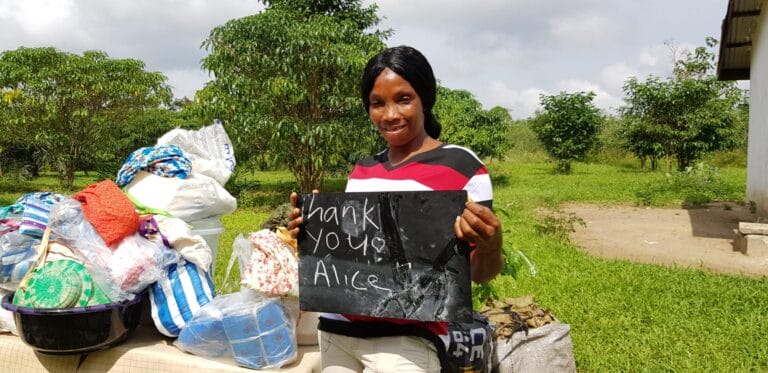 Thank
you
Alice